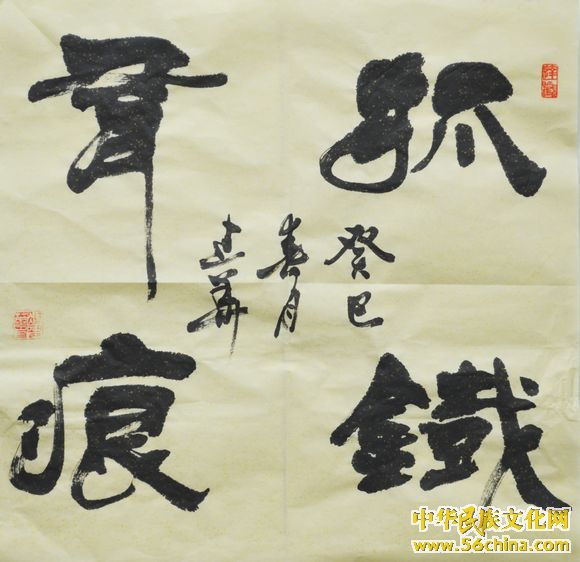 抓鐵
有痕
癸巳
春月
建華
中华民族文化网
www.56china.com